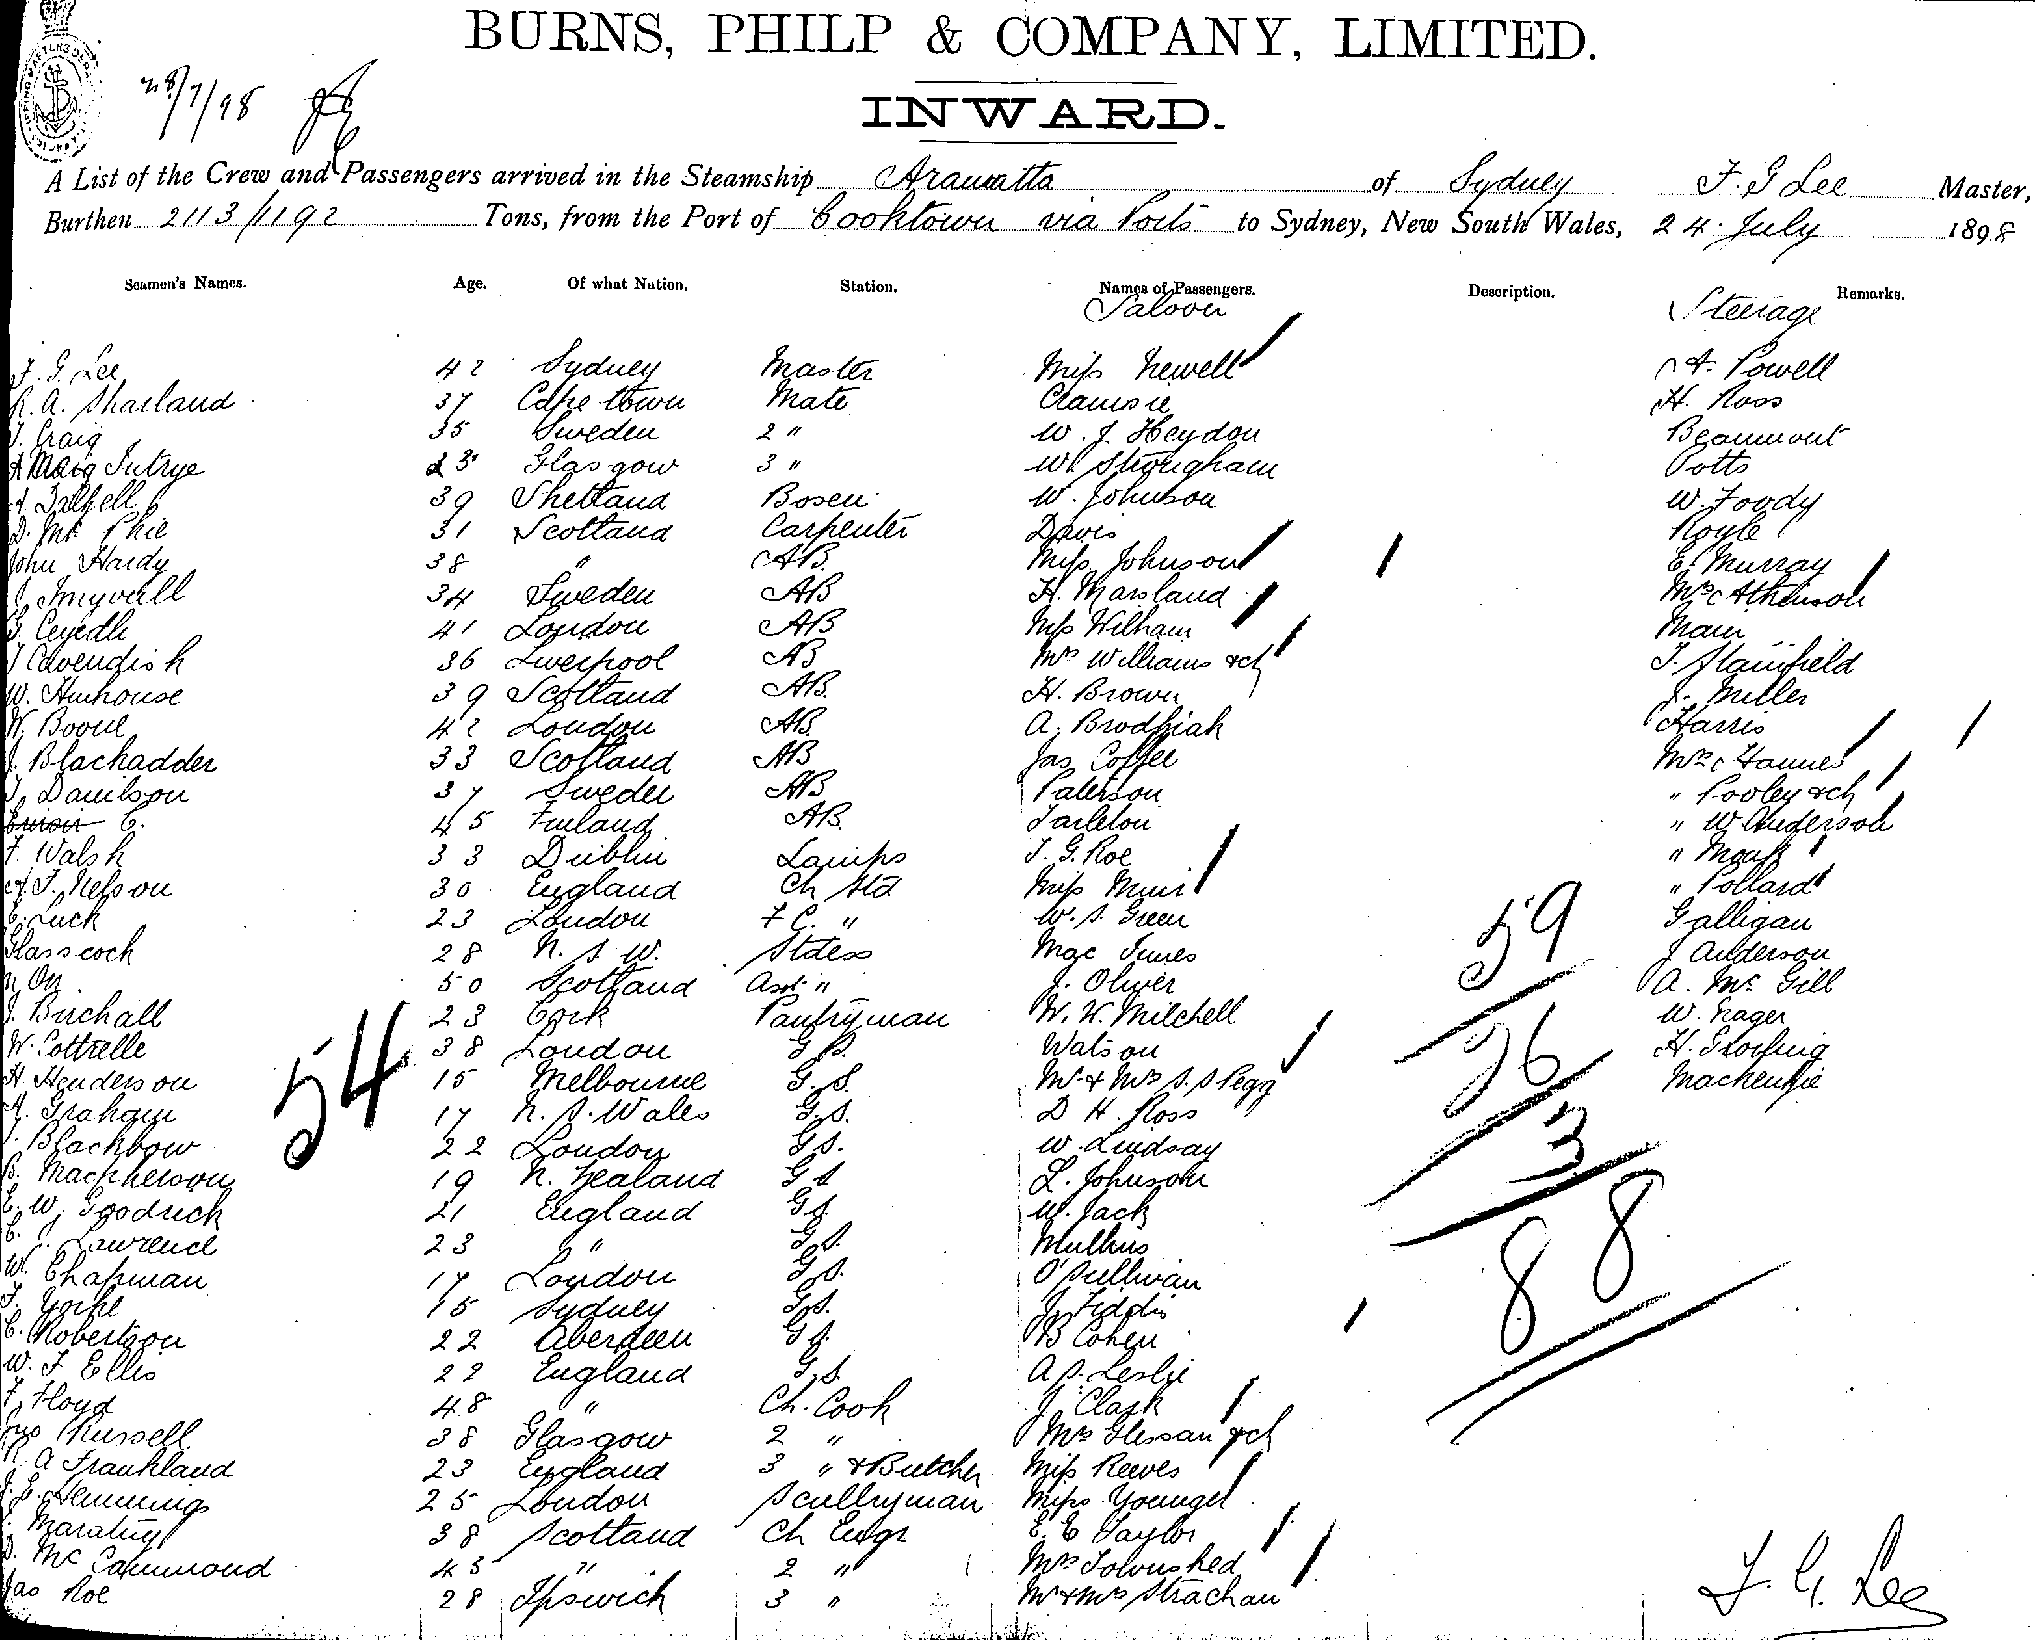 BURNS, PHILP & COMPANY, LIMITED.
28/7/98
INWARD.
A List of the Crew and Passengers arrived in the Steamship Arawatta of Sydney F. G Lee Master,
Burthen 2113/1192 Tons, from the Port of Cooktown via Ports to Sydney, New South Wales, 24 July 1898
Seamen's Names. Age. Of what Nation. Station. Names of Passengers. Description. Remarks.
Saloon Steerage
F. G. Lee 42 Sydney Master Miss Newell A. Powell
R. A. Sharland 37 Cape town Mate H. Ross
J. Craig 35 Sweden 2 " W. J. Heydon Beaumont
23 Glasgow 3 " W. Potts
A. Dalzell 39 Shetland Bosen W. Johnson W. Foody
D. Mc Phie 31 Scotland Carpenter Davis Royle
John Hardy 38 " AB. Miss Johnson E. Murray
34 Sweden AB H. Marsland Mrs Atkinson
41 London AB Miss Main
J Cavendish 36 Liverpool AB Mrs Williams & ch T. Stainfield
W. 39 Scotland AB. H. Brown J. Miller
W. Boone 42 London AB. A. Brodziak Harris
J. Blackadder 33 Scotland AB Jas Coffee Mrs
J. Danilson 37 Sweden AB Paterson " Pooley & ch
E. 45 Finland AB. Tarleton " W Anderson
F. Walsh 33 Dublin Lamps T. G. Roe "
F. Nelson 30 England Ch Std Miss Muir " Pollard
E. Luck 23 London F C. " W. S. Green Galligan
Glasscock 28 N. S. W. Stdess Mge Innes J Anderson
Orr 50 Scotland Asst " J. Oliver A. Mc Gill
J. Birchall 23 Cork Pantryman W. W. Mitchell W. Nager
W. Cottrelle 38 London G S. Watson H.
H. Henderson 15 Melbourne G. S. Mr & Mrs S. S Pegg Mackenzie
A. Graham 17 N. S. Wales G. S. D H. Ross
Blackbow 22 London G S. W. Lindsay
B. Macpherson 19 N. Zealand G S L. Johnson
E. W. Goodrick 21 England G S W. Jack
C. Lawrence 23 " G S.
W. Chapman 17 London G S. O'Sullivan
F. Yorke 15 Sydney G. S. J. Fiddis
C. Robertson 22 Aberdeen G S. B Cohen
W. F Ellis 22 England G S. A S. Leslie
F. Floyd 48 " Ch. Cook J Clark
Russell 38 Glasgow 2 " Mrs Glissan & ch
R. A Frankland 23 England 3 " & Butcher Miss Reeves
J. E. Hemmings 25 London Scullryman Miss Younger
38 Scotland Ch Engr E. E Taylor
D. Mc Cammond 43 " 2 " Mrs Townshed
Jas Roe 28 Ipswich 3 " Mr & Mrs Strachan
54
59
26
3
88
F. G. Lee